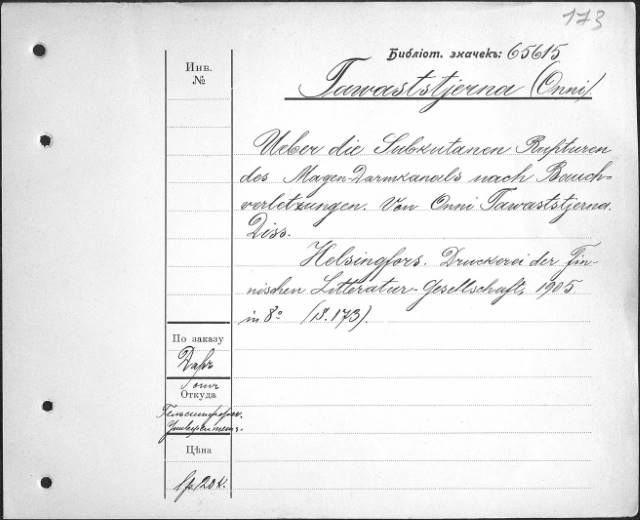 173
Библіот. значекъ: 65615
Инв.
№
Tawaststjerna (Onni).
Ueber die Subkutanen Rupturen
des Magen-Darmkanals nach Bauch-
verletzungen. Von Onni Tawaststjerna.
Diss.
Helsingfors. Druckerei der Fin-
nischen Litteratur-Gesellschaft, 1905.
in 8° (I8.173).
По заказу
Даръ
Откуда
отъ
Гельсингфорск.
Университета.
Цѣна
1р.20к.